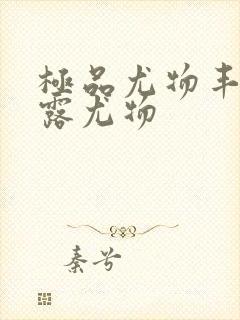 極品尤物丰
露尤物
秦兮